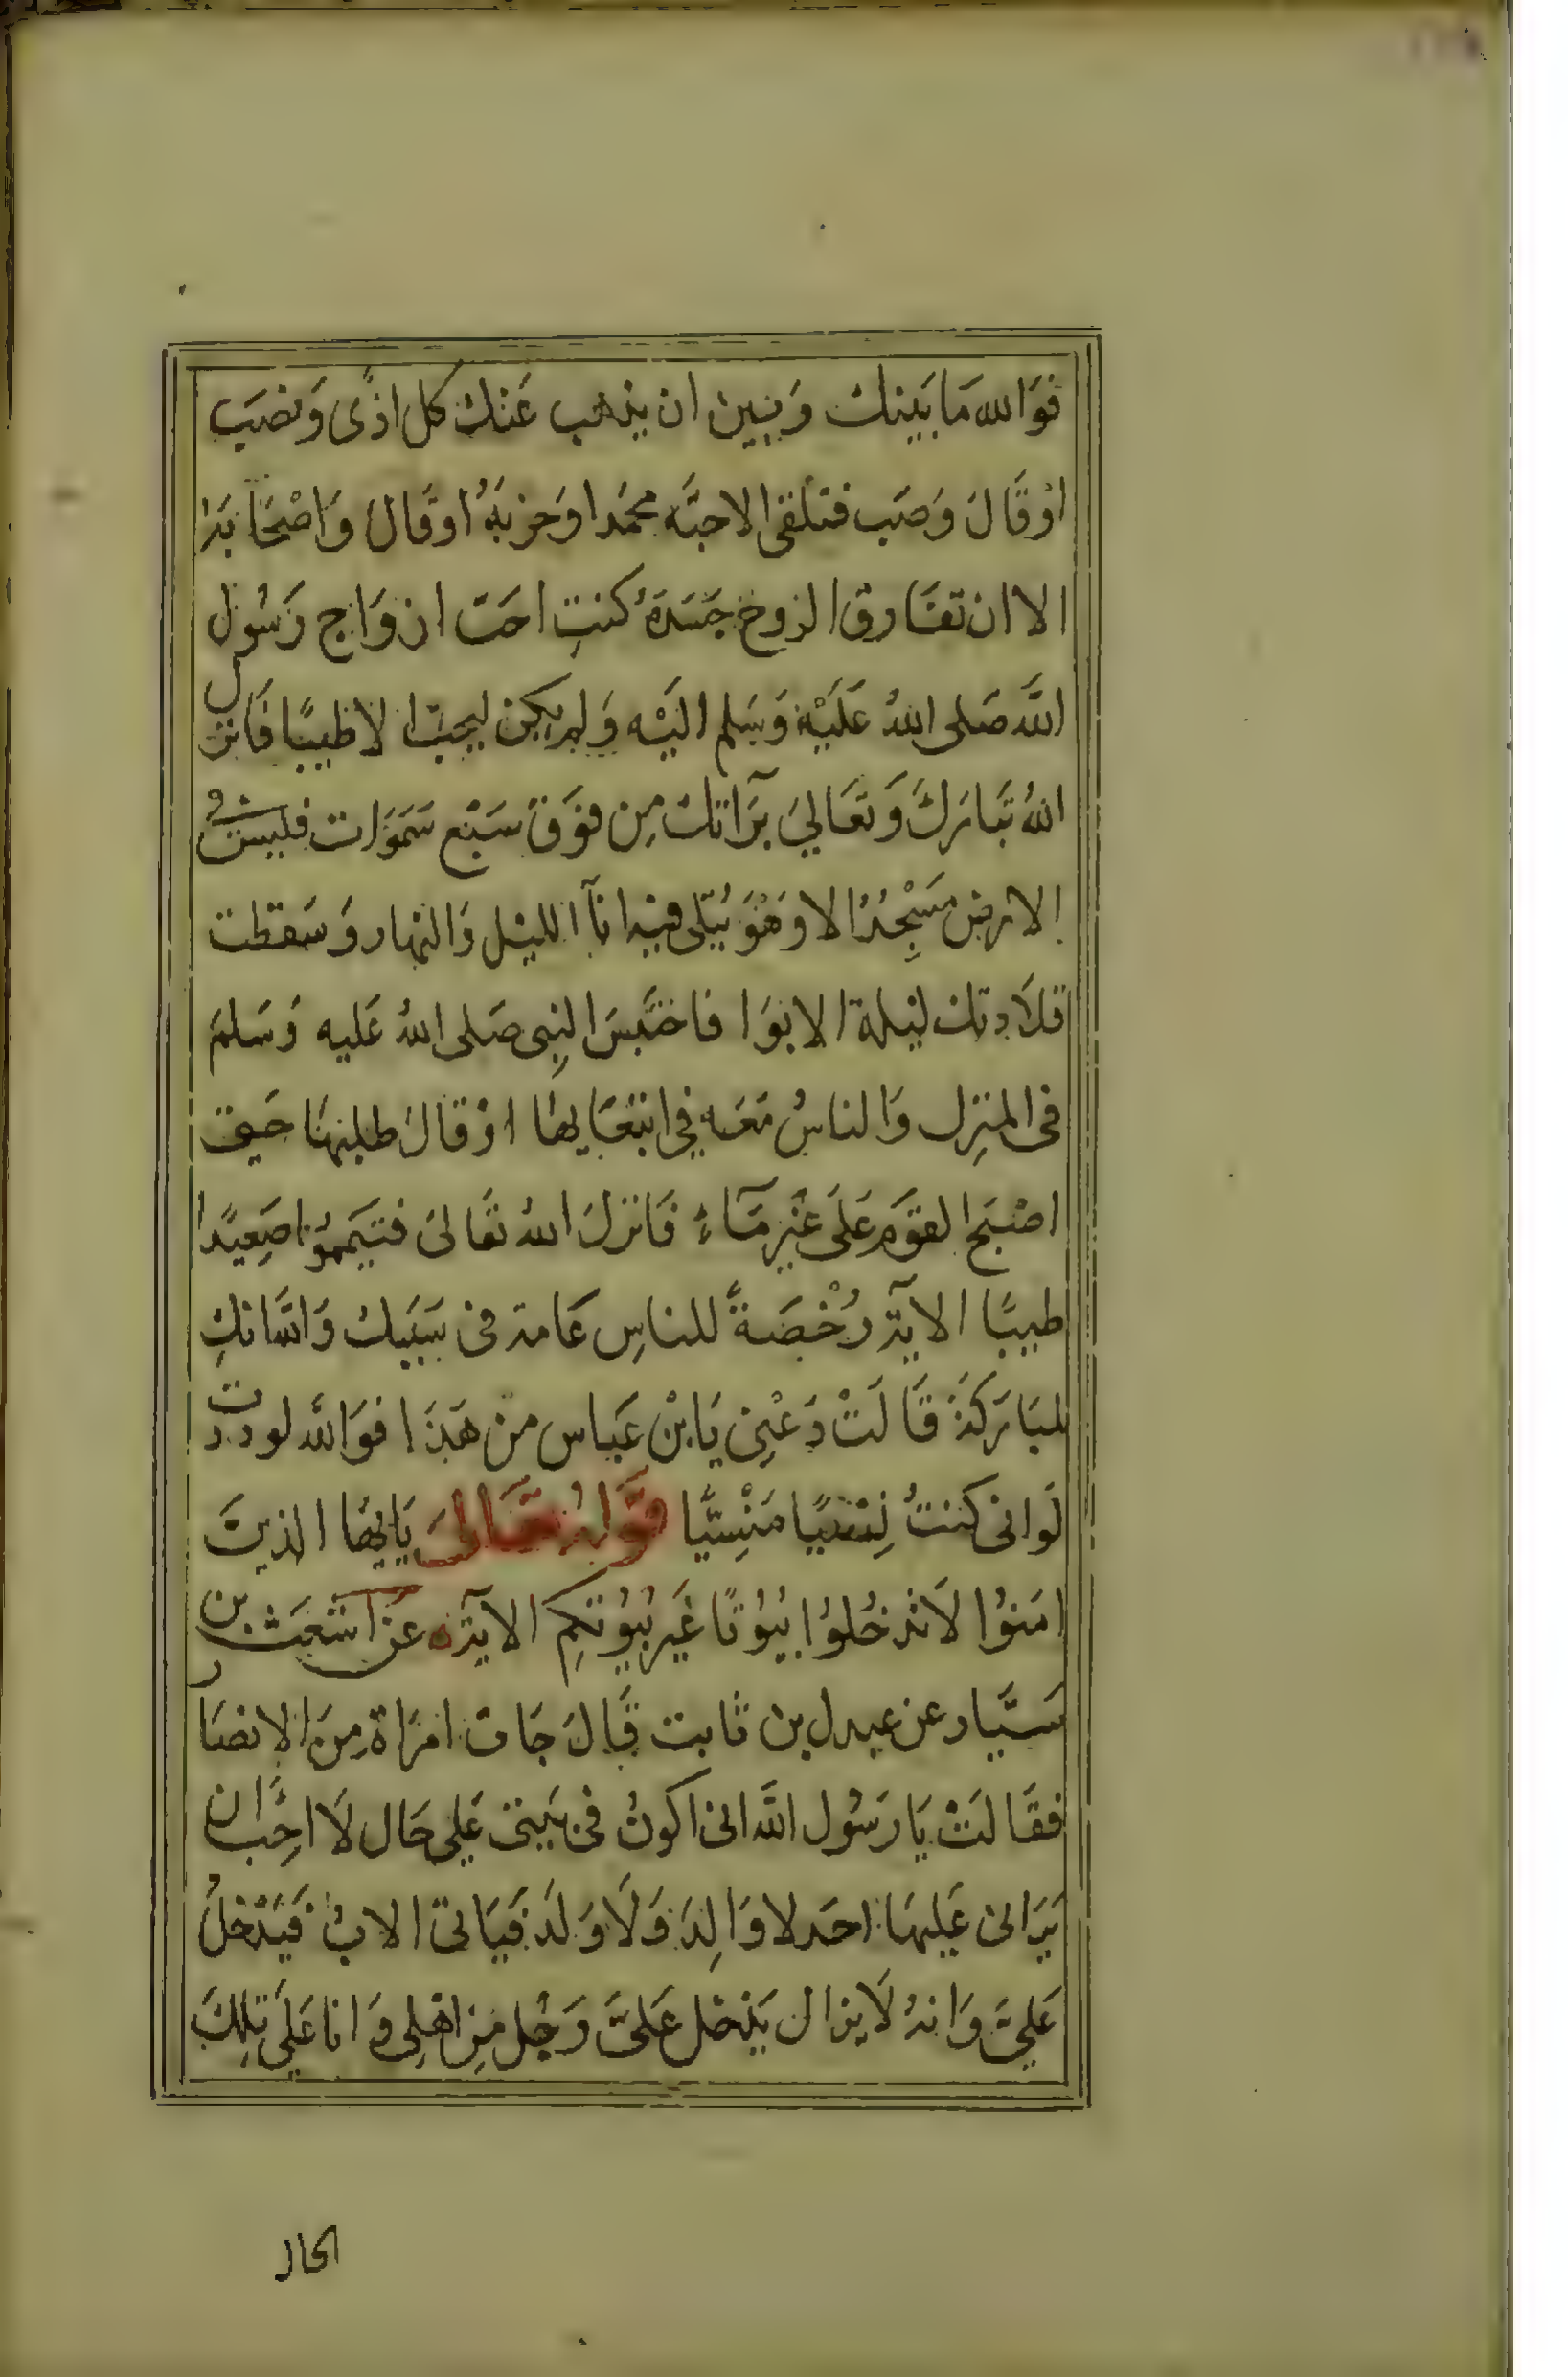 فوَالله مَا بَينك وَبين ان يذهب عَنك كل اذًى وَنصَب
اوْ قَالَ وَصَب فتلقى الاحبَّه محمَدا وَحزبَهُ اوقَال وَاصْحَابَه
الا ان تفَارق الروح جَسَدَهُ كنتِ احَبّ ازوَاج رَسُول
اللَّه صَلى اللهُ عَلَيْه وَسَلم اليَه وَلم يكن ليحبّ الا طيبًا فَانزل
اللهُ تبَارَكَ وَتعَالىَ برَآتك مِن فوَق سَبْع سَمَوَات فليس في
الارض مَسْجِدُ الا وَهُوَ يُتلى فيه انآ الليْل وَالنهَار وَسَقطت
قلاَدتك ليْلة الابوَا فاحتَبسَ النبِى صَلى اللهُ عَليه وَسَلمَ
فى المنزِل وَالناسُ مَعَه فِي ابتغَايهَا اوْ قالَ طلبهَا حَتى
اصْبَح القوَم عَلَى غَيْر مَآءً فَانزلَ اللهُ تعَالىَ فتيَممُوا صَعِيدًا
طيبًا الآيَة رُخْصَةً للناسِ عَامة فى سَبَبك وَاللَّه انكِ
لمبَارَكة قَالَتْ دَعْنِى يَا بْن عَباس من هَذَا فوَاللَّه لوددت
لَوانى كنتُ نِسْيًا مَنْسِيًّا قَوَله تعَالىَ يَايهَا الذينَ
امَنوُا لاَتدْخُلوُا بُيوُتًا غَيرَ بُيوُتكِم الآيَة عَن اشعَث بن
سَيَّار عن عدى بن ثابت قَالَ جَات امرَاة مِنَ الانصَار
فقَالَتْ يَا رَسُول اللَّه انى اكونُ فى بَيتى عَلى حَال لاَ احِبُّ ان
يَرَانى عَليهَا احَد لا وَالِدَ وَلاَ وَلَد فيَاتى الابُ فَيَدْخلُ
عَليَّ وَانهُ لاَ يزال يَدْخل عَلىَّ رَجُل مِن اهْلِى وَانا عَلَى تلِكَ
الحال